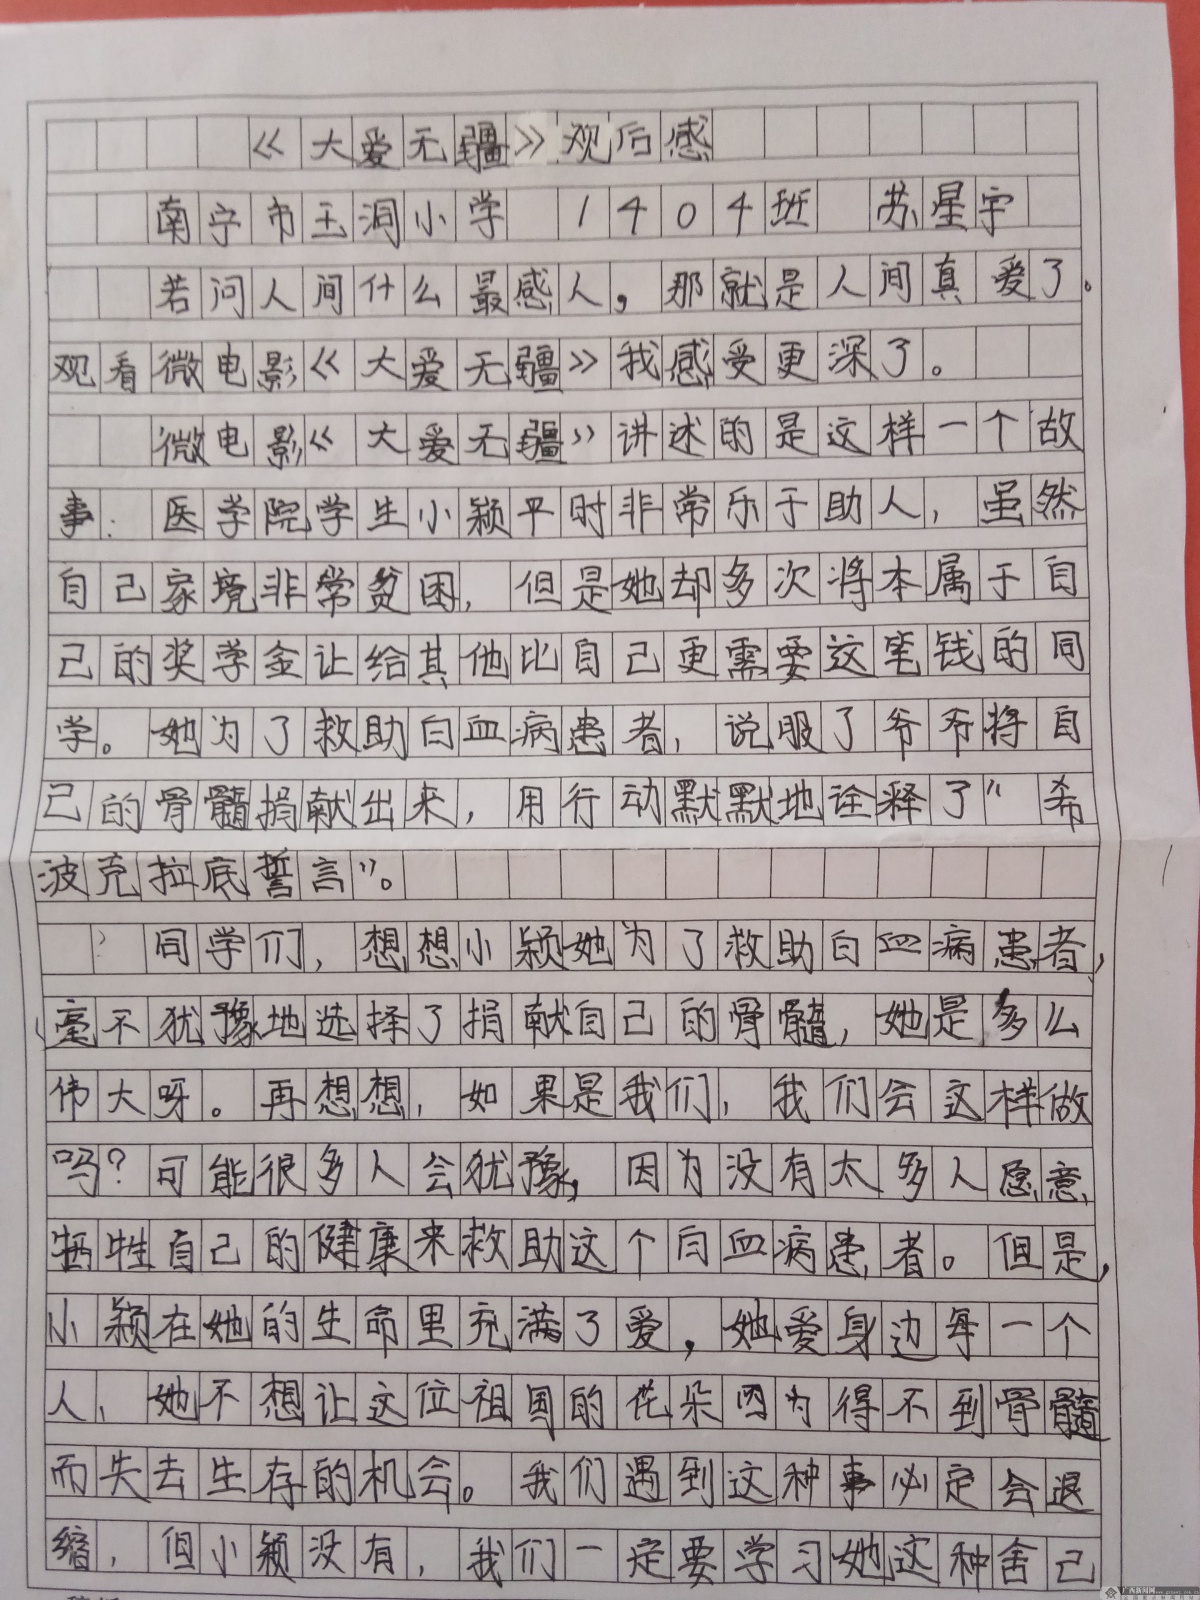 《大爱无疆》观后感
南宁市玉洞小学 1404班 苏星宇
若问人间什么最感人，那就是人间真爱了。
观看微电影《大爱无疆》我感受更深了。
微电影《大爱无疆》讲述的是这样一个故
事：医学院学生小颖平时非常乐于助人，虽然
自己家境非常贫困，但是她却多次将本属于自
己的奖学金让给其他比自己更需要这笔钱的同
学。她为了救助白血病患者，说服了爷爷将自
己的骨髓捐献出来，用行动默默地诠释了”希
波克拉底誓言”。
同学们，想想小颖她为了救助白血病患者，
毫不犹豫地选择了捐献自己的骨髓，她是多么
伟大呀。再想想，如果是我们，我们会这样做
吗？可能很多人会犹豫，因为没有太多人愿意
牺牲自己的健康来救助这个白血病患者。但是，
小颖在她的生命里充满了爱，她爱身边每一个
人，她不想让这位祖国的花朵因为得不到骨髓
而失去生存的机会。我们遇到这种事必定会退
缩，但小颖没有，我们一定要学习她这种舍己
广西新闻网